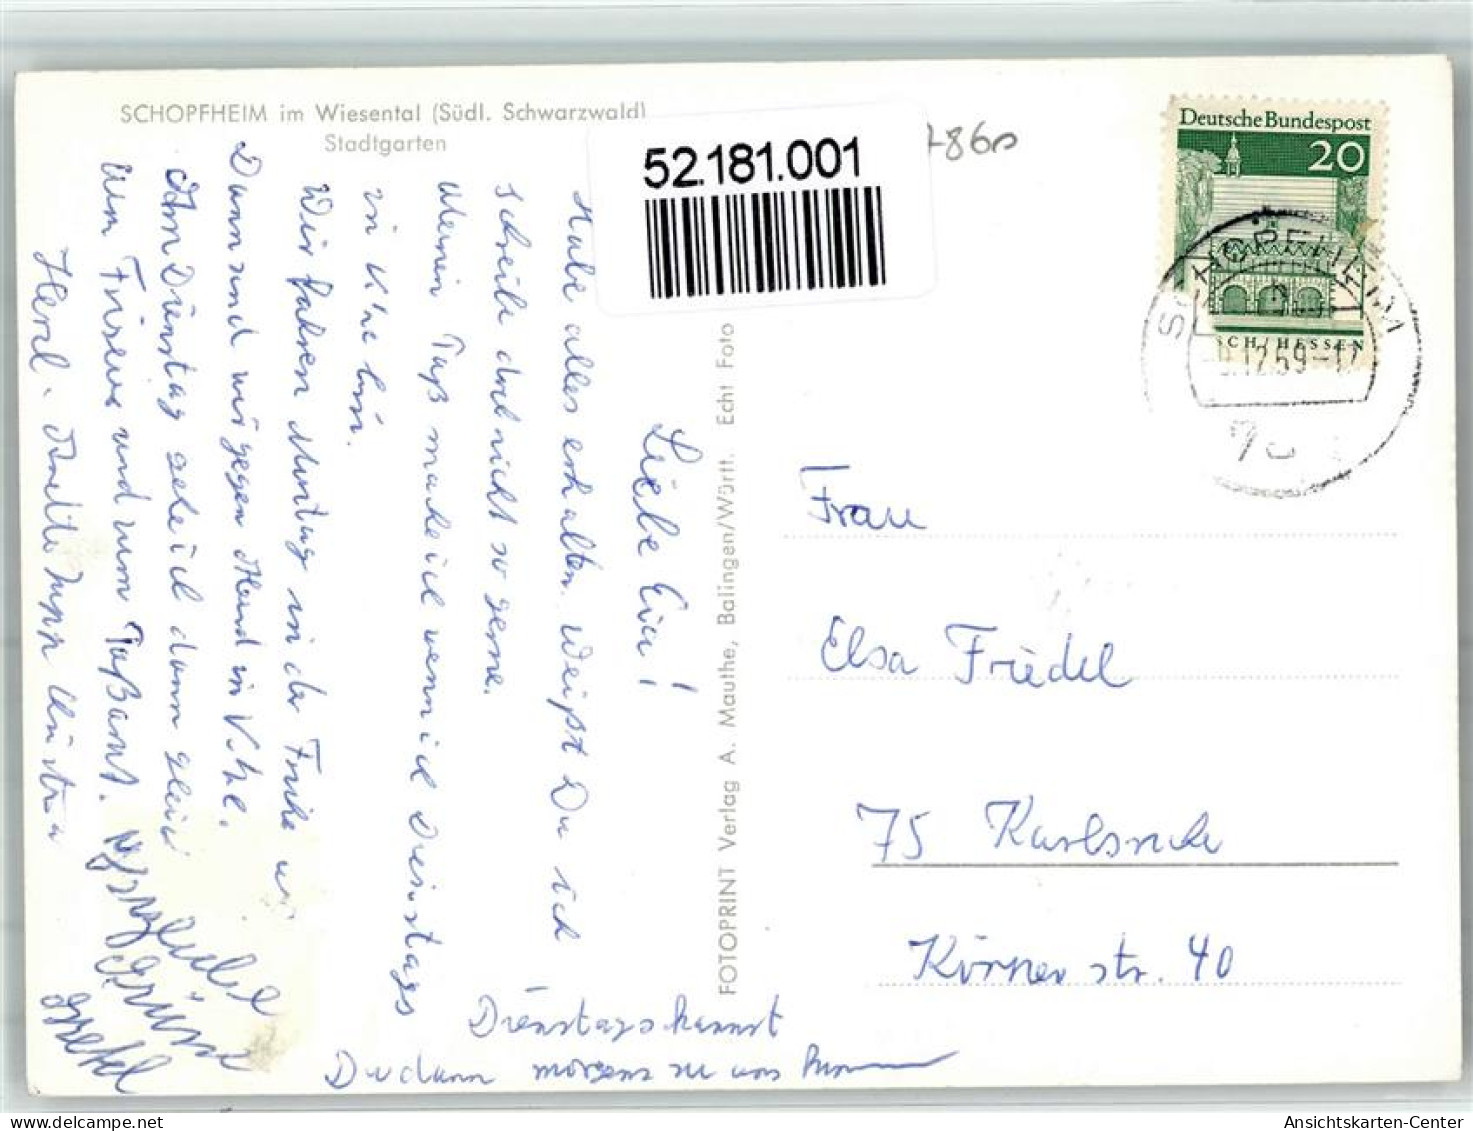 SCHOPFHEIM im Wiesental (Südl. Schwarzwald)
Stadtgarten
52.181.001
7860
Deutsche Bundespost
20
SCH/HESSEN
SCHOPFHEIM
9.12.69-17
FOTOPRINT Verlag A. Mauthe, Balingen/Württ. Echt Foto
Liebe
Habe alles erhalten. Weißt Du ich
schreibe doch nicht so gerne.
Meinen Paß mache ich wenn ich Dienstags
in K'he bin.
Wir fahren Montag in der Frühe
Dann sind wir gegen Abend in K'he.
Am Dienstag gehe ich dann gleich
zum Friseur und zum Paßamt.
Herzliche
Grüsse
Gretel
Dienstags kannst
Du dann morgens zu uns kommen
Frau
Elsa Friedel
75 Karlsruhe
Körnerstr. 40
Ansichtskarten-Center